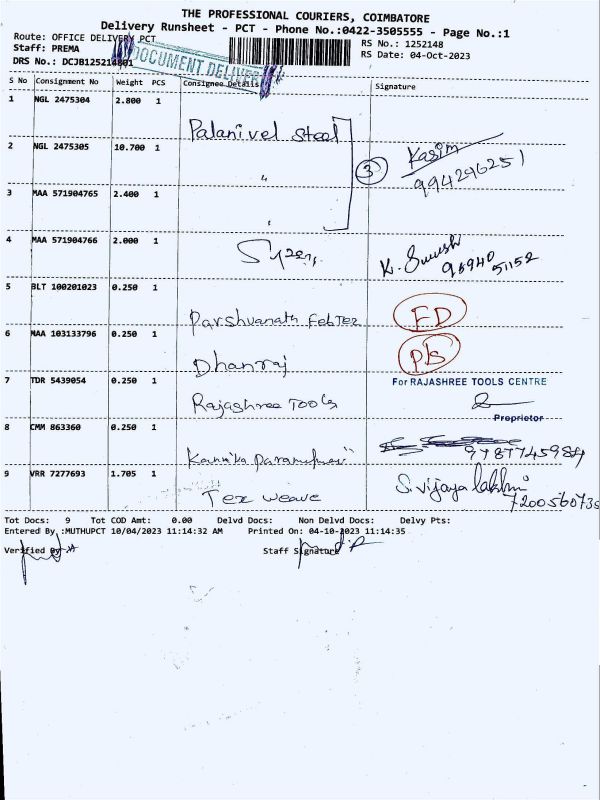 THE PROFESSIONAL COURIERS, COIMBATORE
Delivery Runsheet - PCT - Phone No.:0422-3505555 - Page No.:1
Route: OFFICE DELIVERY PCT
RS No.: 1252148
Staff: PREMA
RS Date: 04-Oct-2023
DRS No.: DCJB1252148
DOCUMENT DELIVER
S No Consignment No Weight PCS Consignee Details Signature
1 NGL 2475304 2.800 1
Palanivel Steel
2 NGL 2475305 10.700 1
3
Kasim
9942962251
3 MAA 571904765 2.400 1
4 MAA 571904766 2.000 1
K. Suresh
96940 51152
5 BLT 100201023 0.250 1
Parshvanath
FD
6 MAA 103133796 0.250 1
Dhanraj
7 TDR 5439054 0.250 1
For RAJASHREE TOOLS CENTRE
Rajashree Tools
Proprietor
8 CMM 863360 0.250 1
9787745984
Kannika
9 VRR 7277693 1.705 1
S. Vijaya lakhmi
Tex weave
Tot Docs: 9 Tot COD Amt: 0.00 Delvd Docs: Non Delvd Docs: Delvy Pts:
Entered By :MUTHUPCT 10/04/2023 11:14:32 AM Printed On: 04-10-2023 11:14:35
Verified By Staff Signature